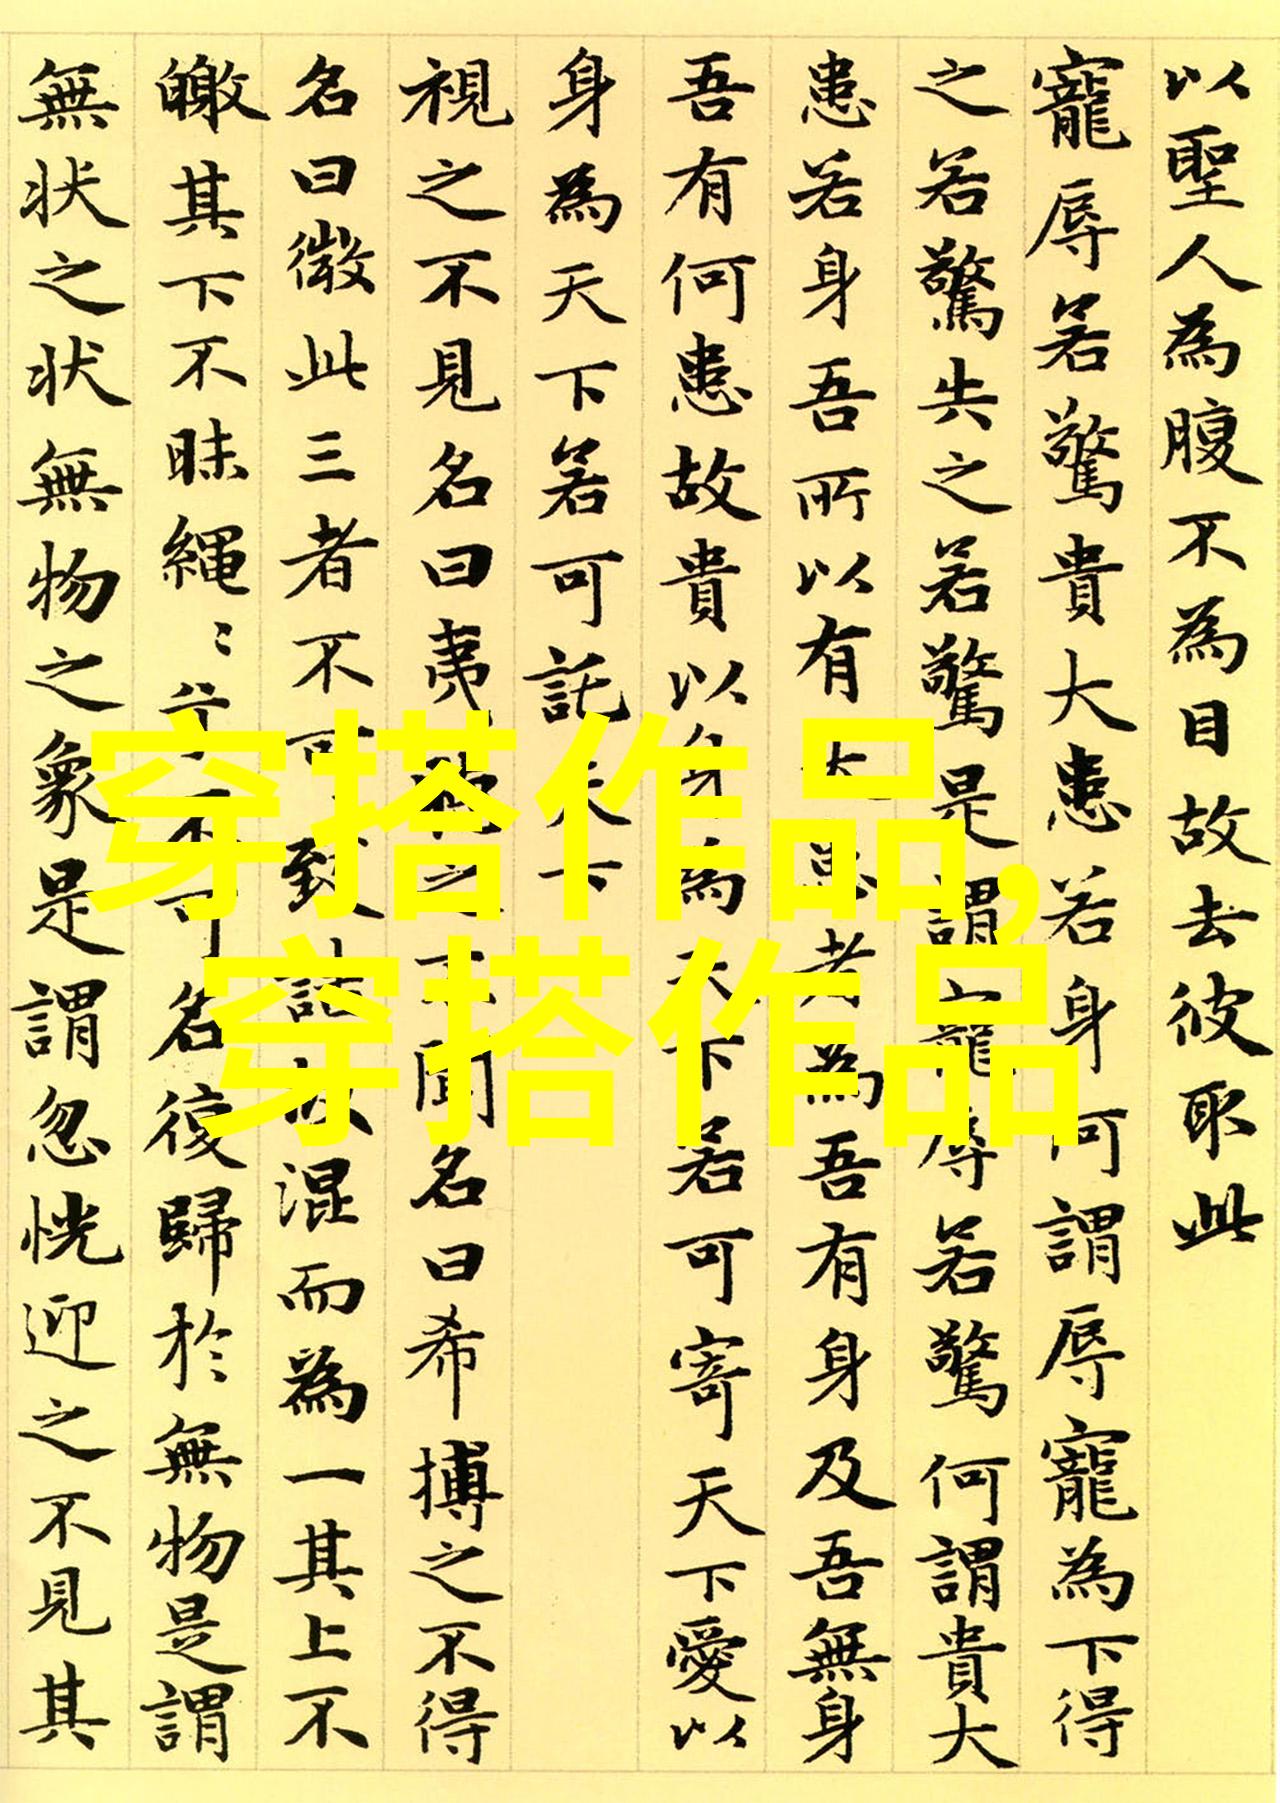 以聖人為腹不為目故去彼取此
寵辱若驚貴大患若身何謂辱寵為下得
之若驚失之若驚是謂寵辱若驚何謂貴大
患若身吾所以有大患者為吾有身及吾無身
吾有何患故貴以身為天下若可寄天下愛以
身為天下若可託天下
視之不見名曰夷之不聞名曰希搏之不得
名曰微此三者不可致詰故混而為一其上不
皦其下不昧繩〻兮不可名復歸於無物是謂
無状之状無物之象是謂忽恍迎之不見其
穿搭作品,
穿搭作品